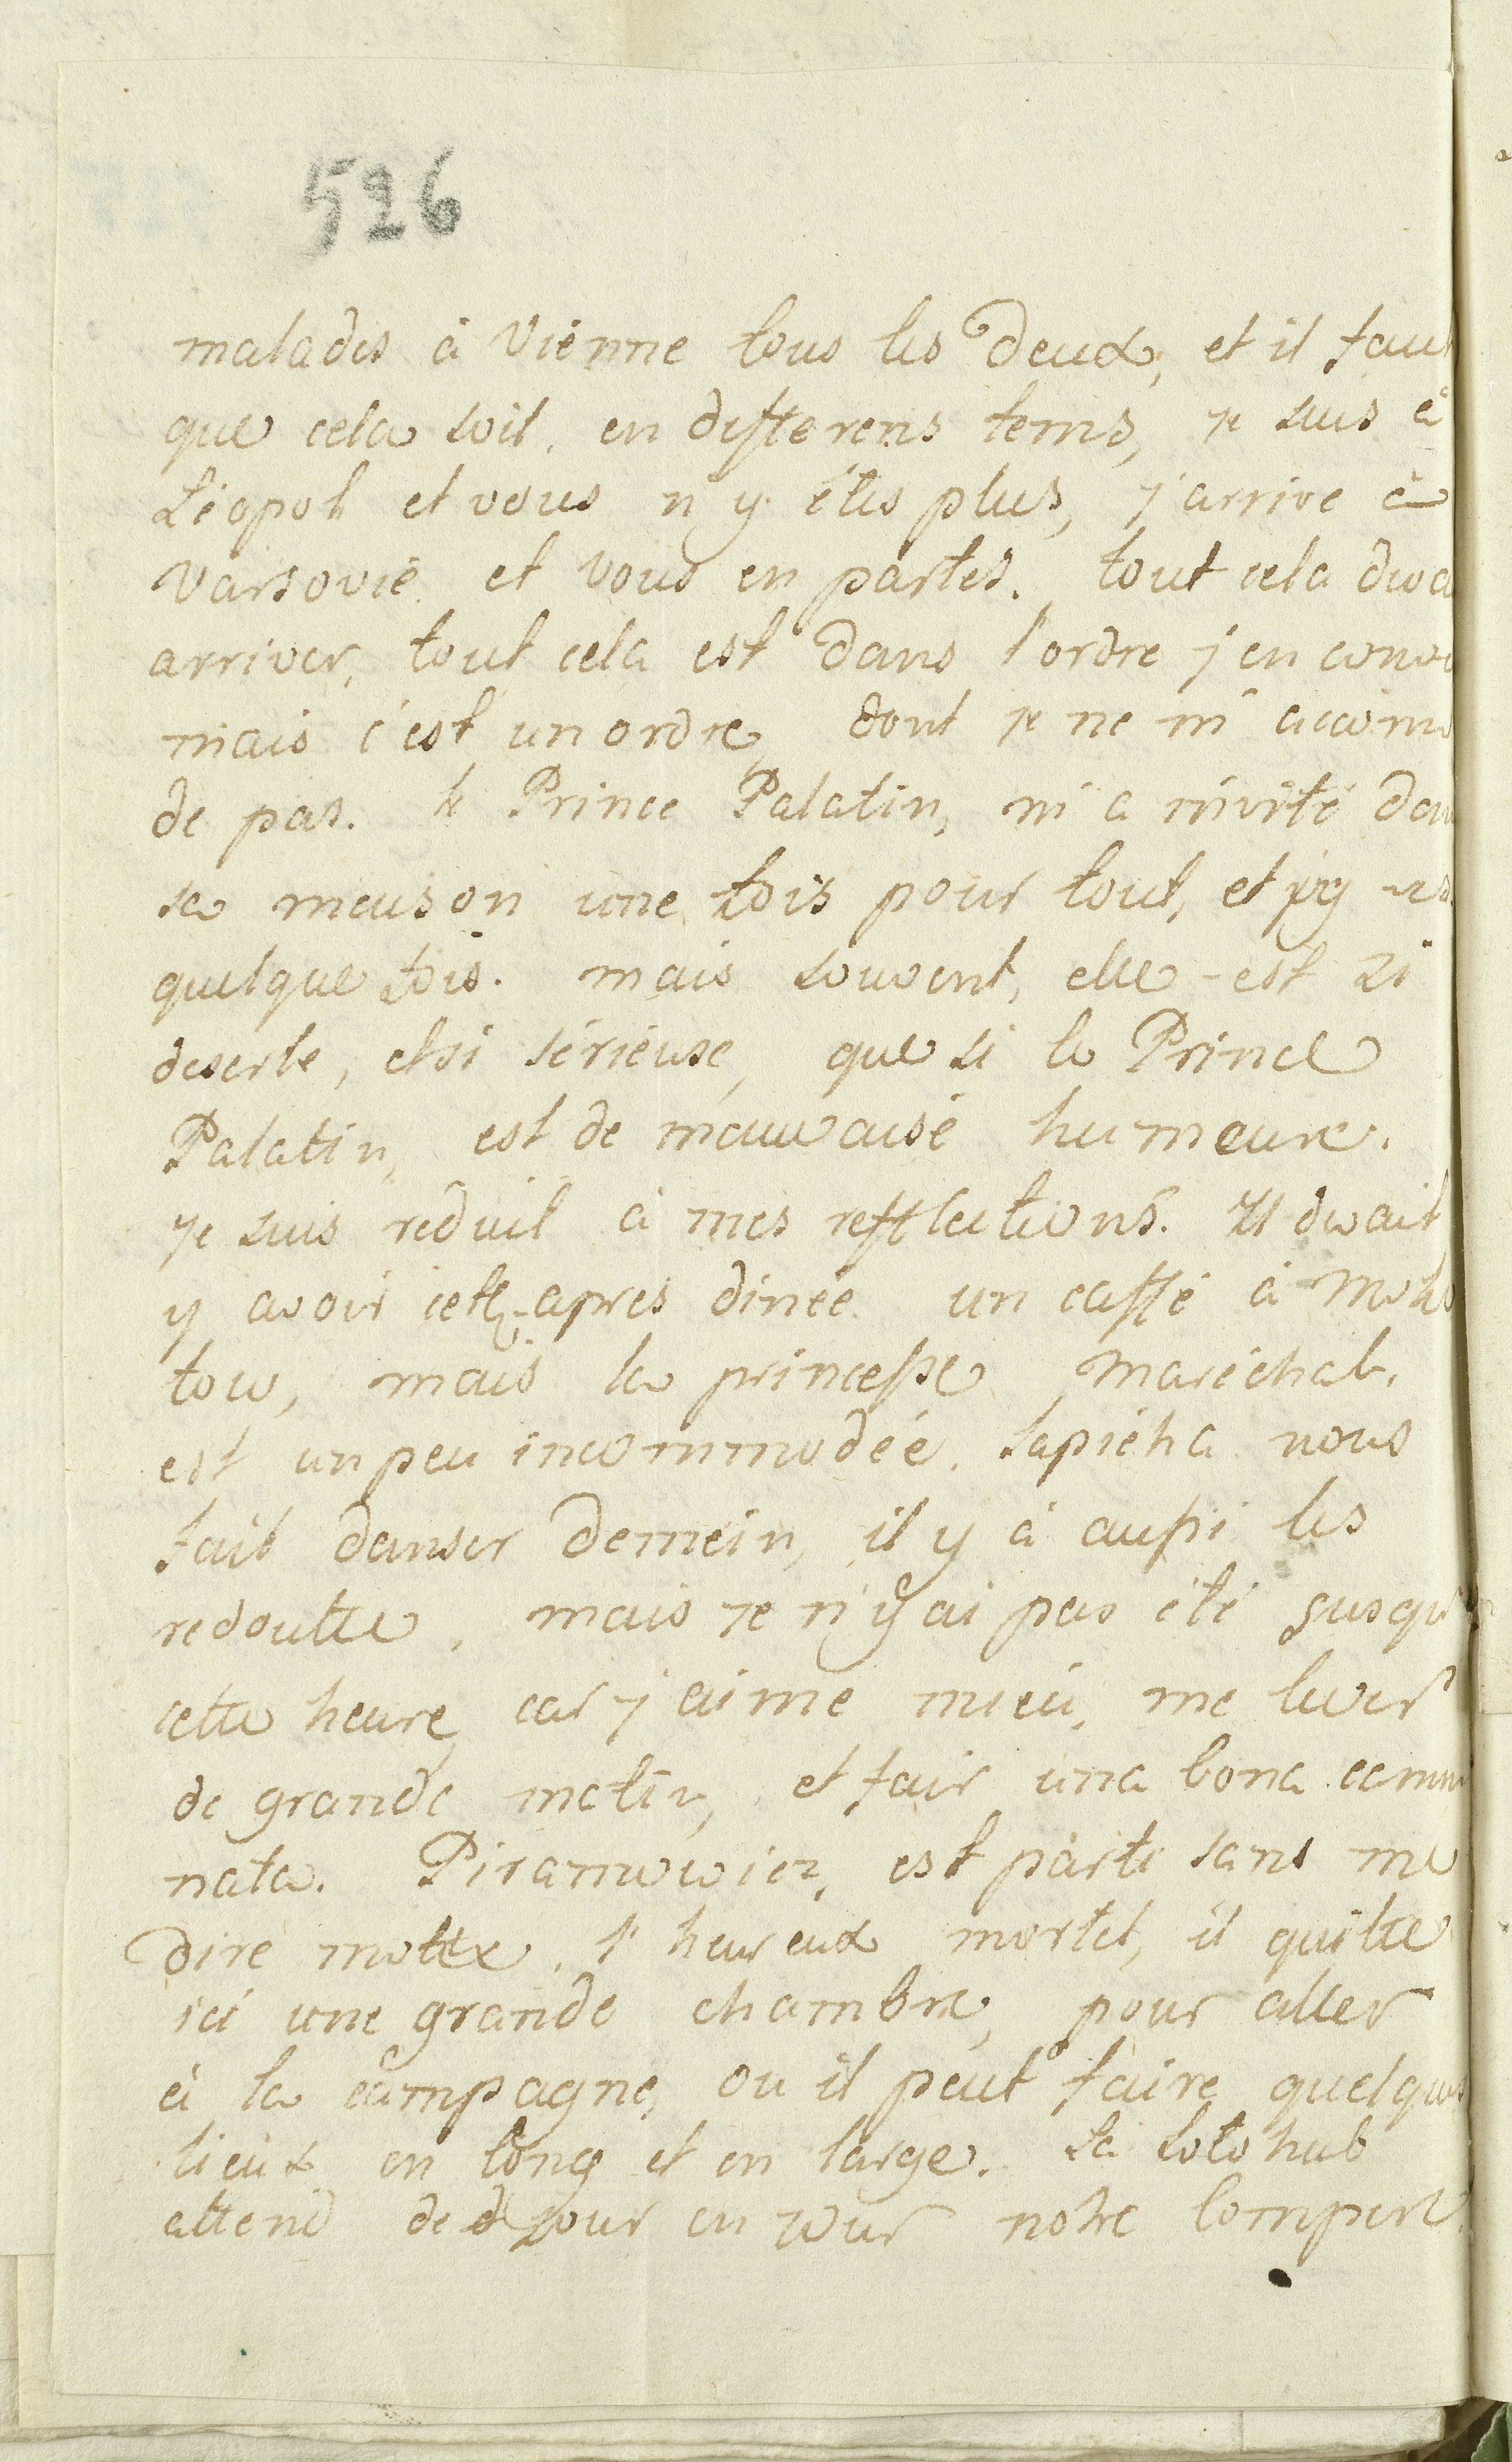 526
malades à Viénne tous les deux, et il faut
que cela soit en differens tems, je suis à
Léopol et vous n'y étes plus, j'arrive à
Varsovie et vous en partes. tout cela dwa
arriver, tout cela est dans l'ordre j'en conv
mais c'est un ordre, dont je ne m'accomo
de pas. le Prince Palatin, m'a invité dan
sa maison une fois pour tout, et
quelque fois. mais souvent, elle est si
deserte, et si sérieuse, que si le Prince
Palatin, est de mauvaise humeure.
je suis reduit à mes refflections. Il dwait
y avoir cette apres dinée un caffé à Moko
tow, mais la princesse Maréchal.
est un peu incommodée. Sapieha nous
fait danser demein, il y à aussi les
redoutte, mais je n'y ai pas été jusqu'
cette heure, car j'aime mieu, me lever
de grande matin, et fair una bona cammi
nata. Piramowicz, est parti sans me
dire mottx. l'heureux mortel, il quitte
ici une grande chambre, pour aller
à la campagne, ou il peut faire quelques
lieux en long et en large. La Solohub
attend de jour en jour notre Compere.